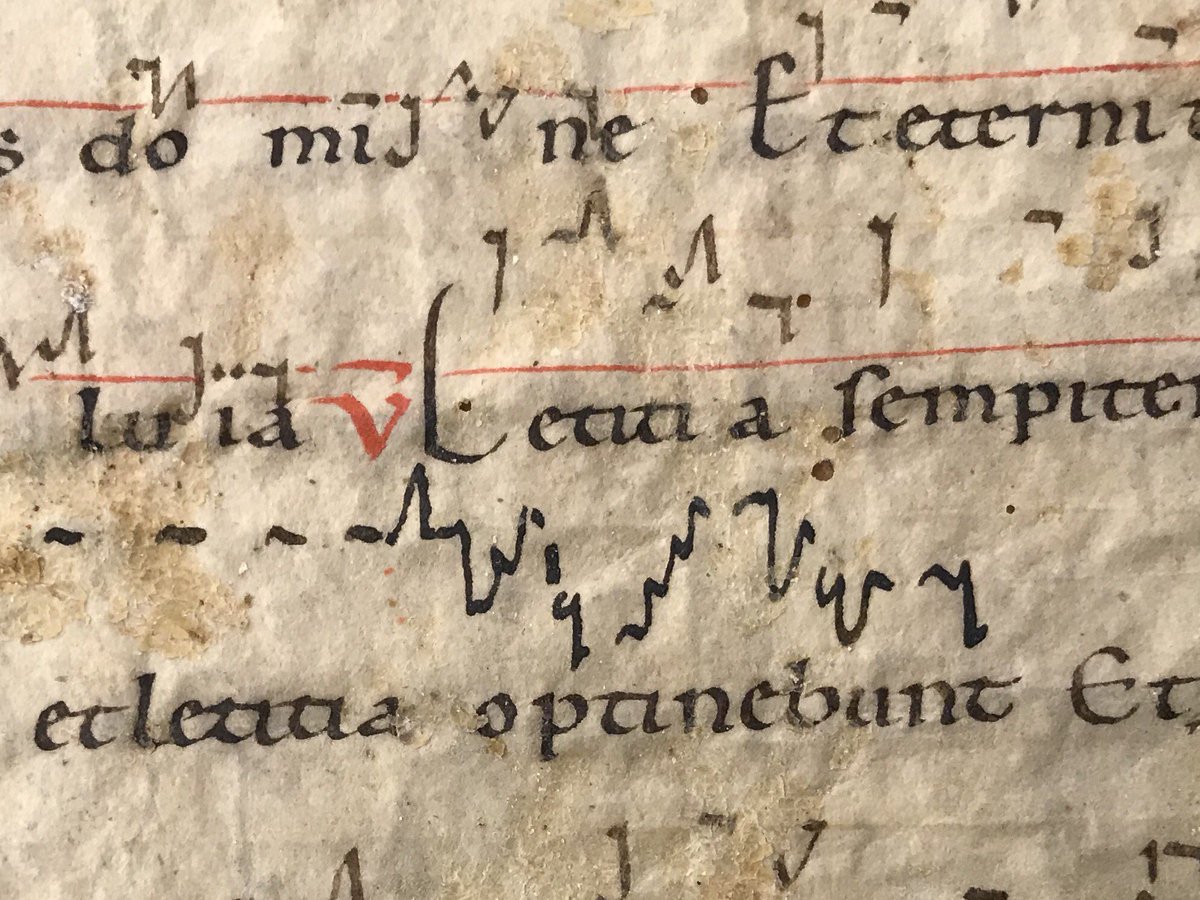 s do mi ne Et eterni
lu ia V Letiti a sempiter
et letitia optinebunt Et